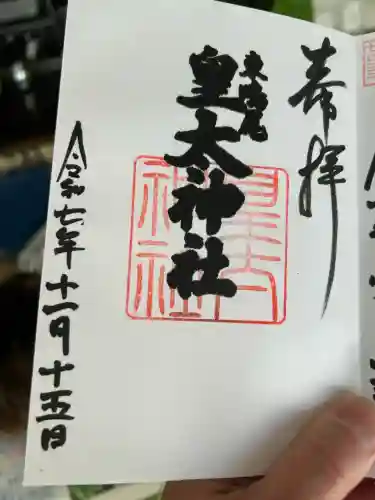 奉拝
皇大神社
皇大神社
令和七年十一月十五日